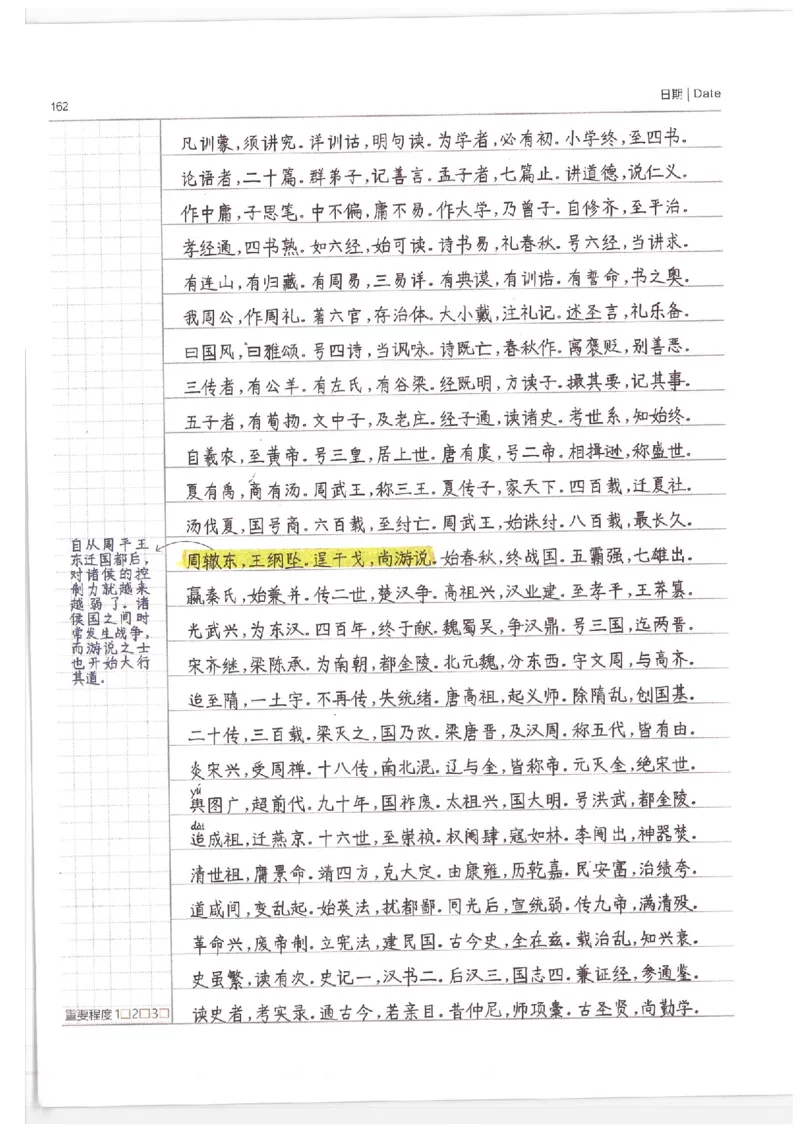 162
日期 | Date
凡训蒙,须讲究.详训诂,明句读.为学者,必有初.小学终,至四书.
论语者,二十篇.群弟子,记善言.孟子者,七篇止.讲道德,说仁义.
作中庸,子思笔.中不偏,庸不易.作大学,乃曾子.自修齐,至平治.
孝经通,四书熟.如六经,始可读.诗书易,礼春秋.号六经,当讲求.
有连山,有归藏.有周易,三易详.有典谟,有训诰.有誓命,书之奥.
我周公,作周礼.著六官,存治体.大小戴,注礼记.述圣言,礼乐备.
曰国风,曰雅颂.号四诗,当讽咏.诗既亡,春秋作.寓褒贬,别善恶.
三传者,有公羊.有左氏,有谷梁.经既明,方读子.撮其要,记其事.
五子者,有荀扬.文中子,及老庄.经子通,读诸史.考世系,知始终.
自羲农,至黄帝.号三皇,居上世.唐有虞,号二帝.相揖逊,称盛世.
夏有禹,商有汤.周武王,称三王.夏传子,家天下.四百载,迁夏社.
汤伐夏,国号商.六百载,至纣亡.周武王,始诛纣.八百载,最长久.
周辙东,王纲坠.逞干戈,尚游说.始春秋,终战国.五霸强,七雄出.
嬴秦氏,始兼并.传二世,楚汉争.高祖兴,汉业建.至孝平,王莽篡.
光武兴,为东汉.四百年,终于献.魏蜀吴,争汉鼎.号三国,迄两晋.
宋齐继,梁陈承.为南朝,都金陵.北元魏,分东西.宇文周,与高齐.
迨至隋,一土宇.不再传,失统绪.唐高祖,起义师.除隋乱,创国基.
二十传,三百载.梁灭之,国乃改.梁唐晋,及汉周.称五代,皆有由.
炎宋兴,受周禅.十八传,南北混.辽与金,皆称帝.元灭金,绝宋世.
yú
舆图广,超前代.九十年,国祚废.太祖兴,国大明.号洪武,都金陵.
dài
迨成祖,迁燕京.十六世,至崇祯.权阉肆,寇如林.李闯出,神器焚.
清世祖,膺景命.靖四方,克大定.由康雍,历乾嘉.民安富,治绩夸.
道咸间,变乱起.始英法,扰都鄙.同光后,宣统弱.传九帝,满清殁.
革命兴,废帝制.立宪法,建民国.古今史,全在兹.载治乱,知兴衰.
史虽繁,读有次.史记一,汉书二.后汉三,国志四.兼证经,参通鉴.
读史者,考实录.通古今,若亲目.昔仲尼,师项橐.古圣贤,尚勤学.
自从周平王
东迁国都后,
对诸侯的控
制力就越来
越弱了.诸
侯国之间时
常发生战争,
而游说之士
也开始大行
其道.
重要程度 1□2□3□